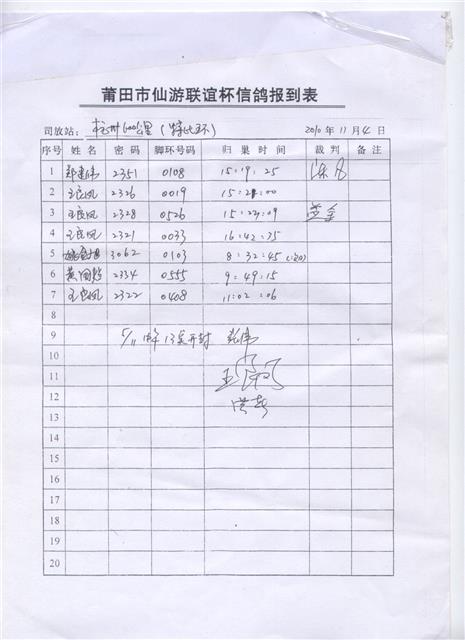 莆田市仙游联谊杯信鸽报到表
司放站： 杭州600公里（特比环） 2010 年 11 月 4 日
序号 姓名 密码 脚环号码 归巢时间 裁判 备注
1 郑建伟 2351 0108 15:19:25
2 王良凤 2326 0019
3 王良凤 2328 0526
4 王良凤 2321 0033 16:42:35
5 3062 0103 8:32:45
6 2334 0555 9:49:15
7 王良凤 2322 0408 11:02:06
8
9 5/11 开封
10
11
12
13
14
15
16
17
18
19
20